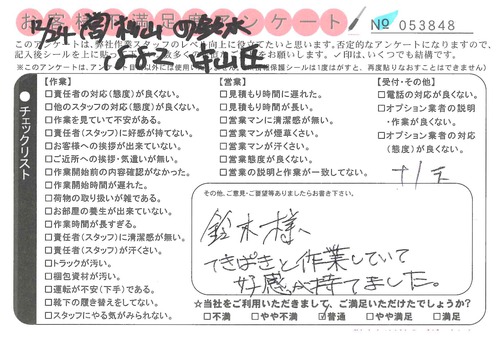 お客様満足度アンケート
№ 053848
このアンケートは、弊社作業スタッフのレベル向上に役立てたいと思います。否定的なアンケートになりますので、
記入後シールを上に貼って
お願いします。✓印は、いくつでも結構です。
チェックリスト
【作業】
□責任者の対応(態度)が良くない。
□他のスタッフの対応(態度)が良くない。
□作業を見ていて不安がある。
□責任者(スタッフ)に好感が持てない。
□お客様への挨拶が出来ていない。
□ご近所への挨拶・気遣いが無い。
□作業開始前の内容確認がなかった。
□作業開始時間が遅れた。
□荷物の取り扱いが雑である。
□お部屋の養生が出来ていない。
□作業時間が長すぎる。
□責任者(スタッフ)に清潔感が無い。
□責任者(スタッフ)が汗くさい。
□トラックが汚い。
□梱包資材が汚い。
□運転が不安(下手)である。
□靴下の履き替えをしてない。
□スタッフにやる気がみられない。
【営業】
□見積もり時間に遅れた。
□見積もり時間が長い。
□営業マンに清潔感が無い。
□営業マンが煙草くさい。
□営業マンが汗くさい。
□営業態度が良くない。
□営業の説明と作業が一致してない。
【受付・その他】
□電話の対応が良くない。
□オプション業者の説明
・作業が良くない。
□オプション業者の対応
(態度)が良くない。
その他、ご意見・ご要望等ありましたらお書き下さい。
鈴木様、
てきぱきと作業していて
好感が持てました。
☆当社をご利用いただきまして、ご満足いただけたでしょうか?
□不満 □やや不満 ☑普通 □やや満足 □満足